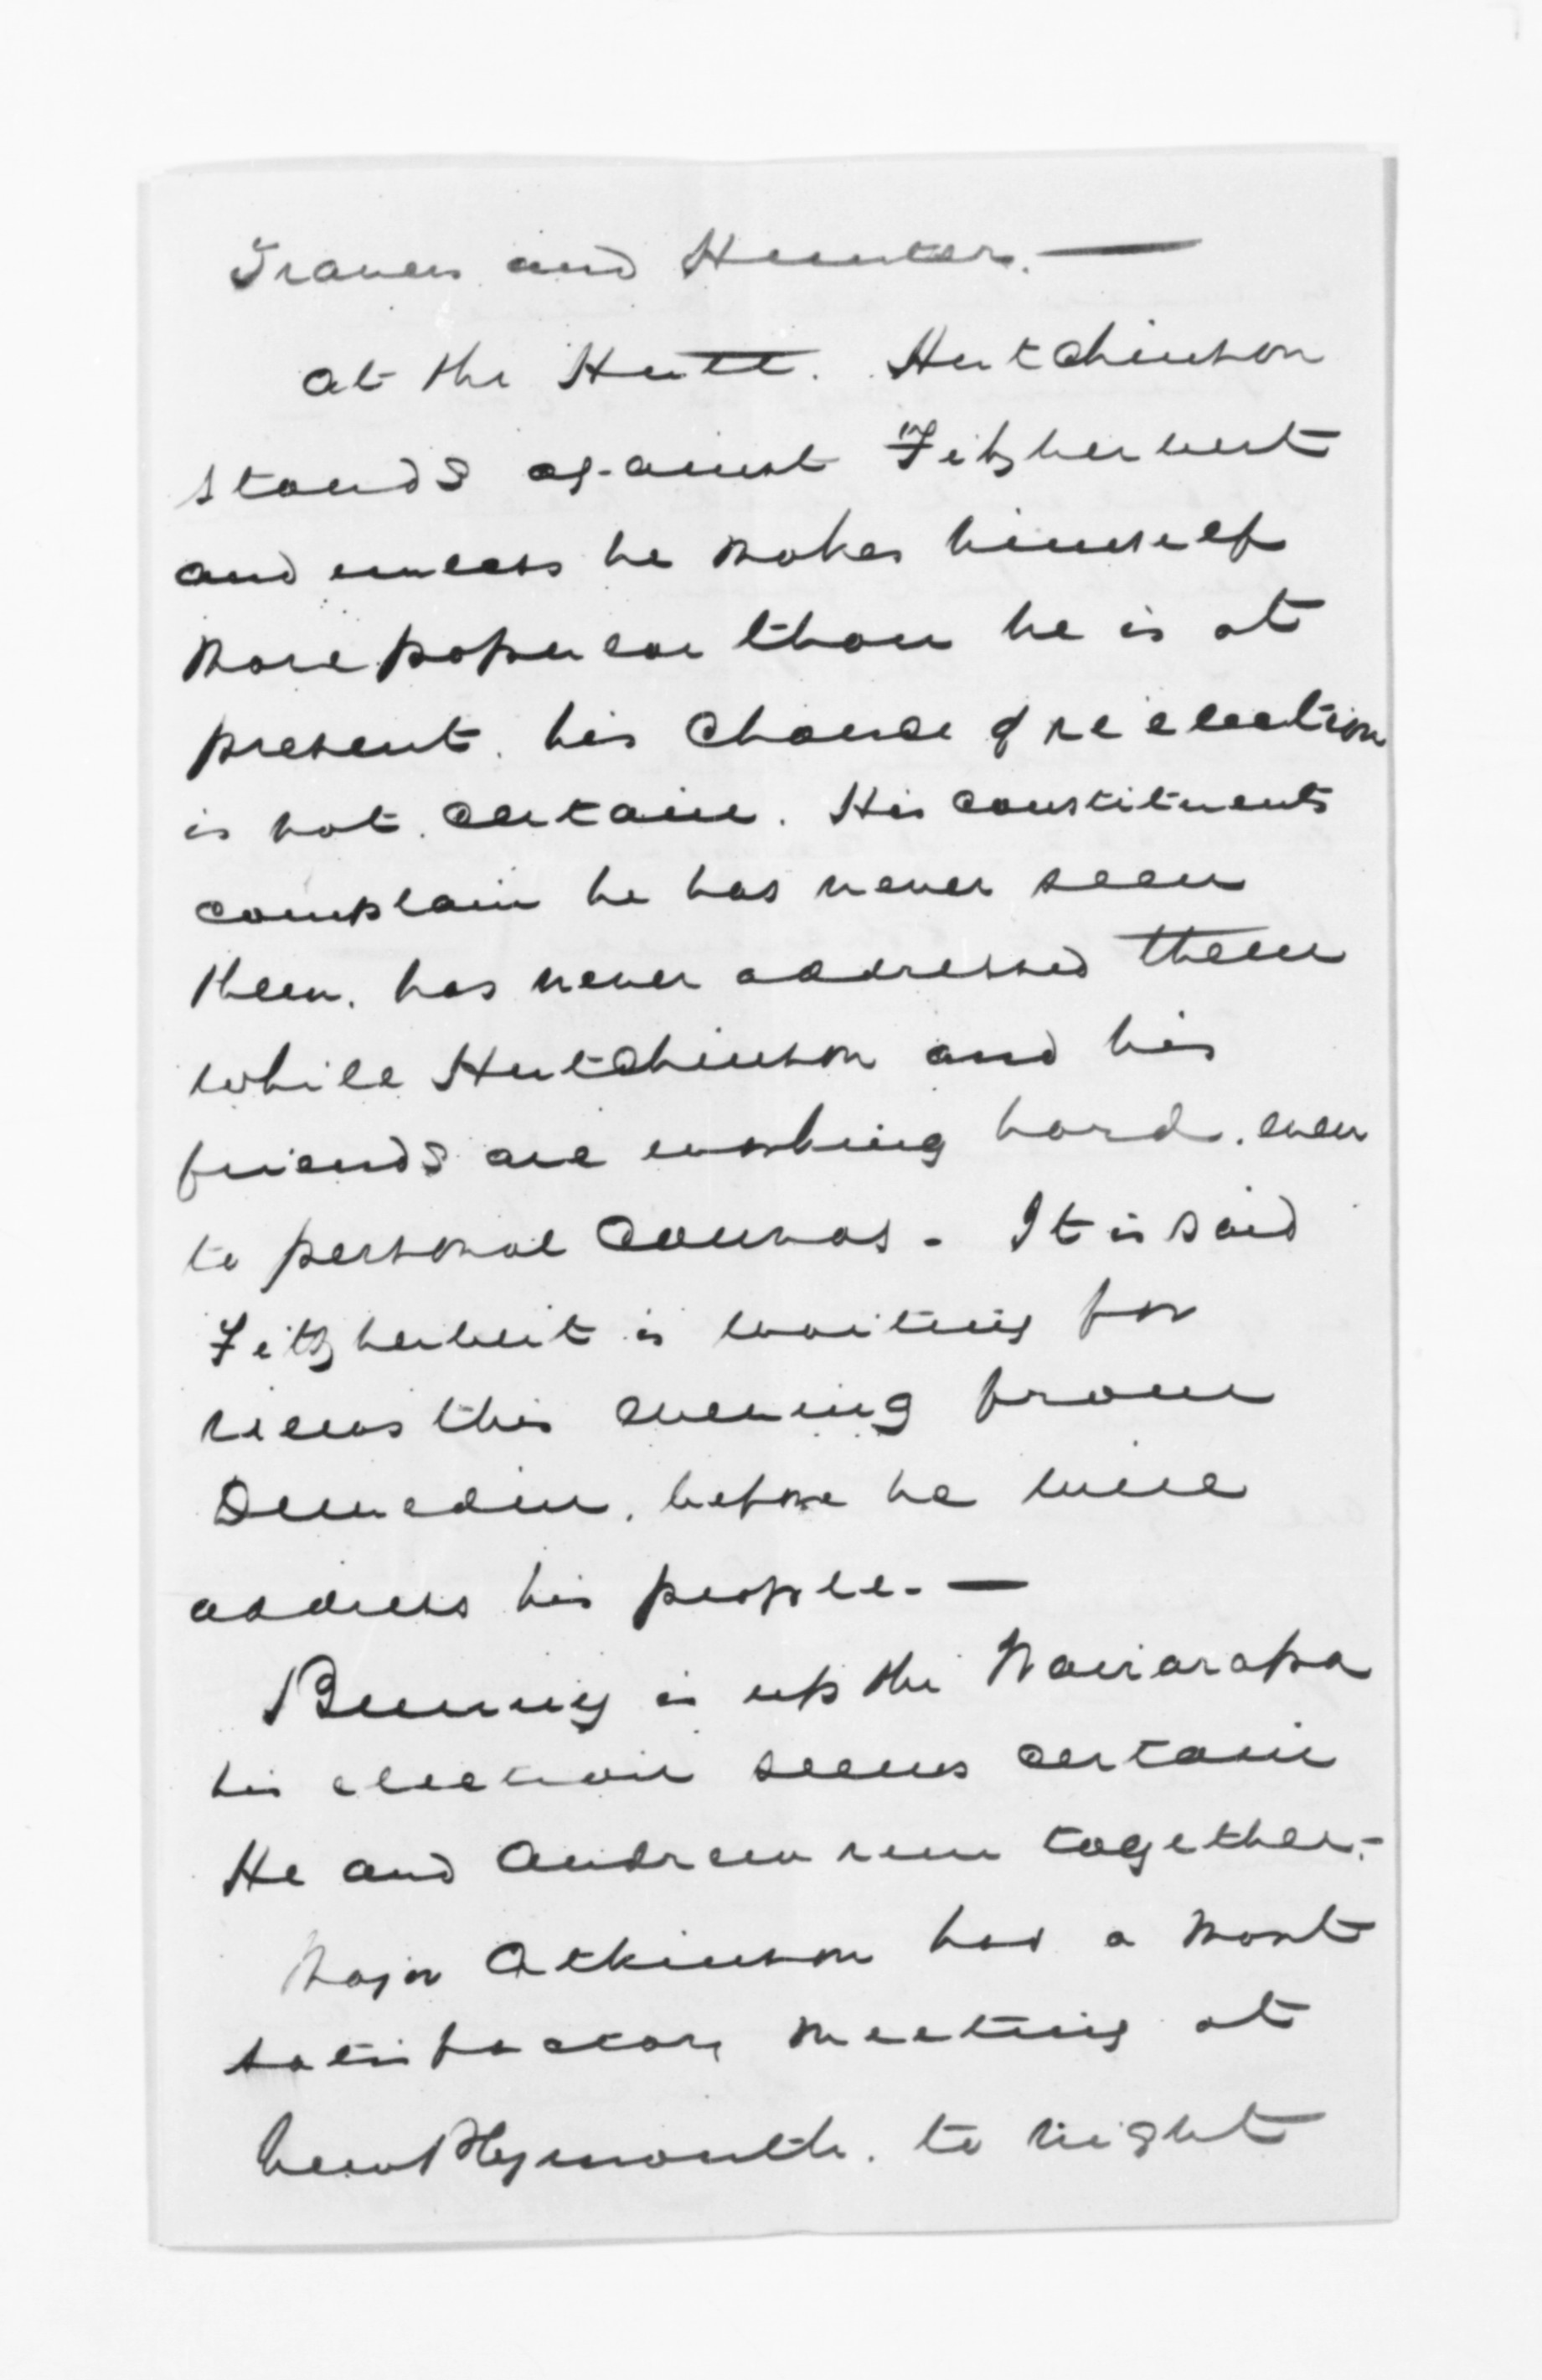 Travers and Hunter. —
at the Hutt. Hutchinson
stands against Fitzherbert
and unless he makes himself
more popular than he is at
present. his chance of reelection
is not certain. His constituents
complain he has never seen
them. has never addressed them
while Hutchinson and his
friends are working hard. even
to personal canvas - It is said
Fitzherbert is waiting for
news this evening from
Dunedin, before he will
address his people. —
Bunny is up the Wairarapa
his election seems certain
He and Andrew run together. -
Major Atkinson had a most
satisfactory meeting at
New Plymouth. to night